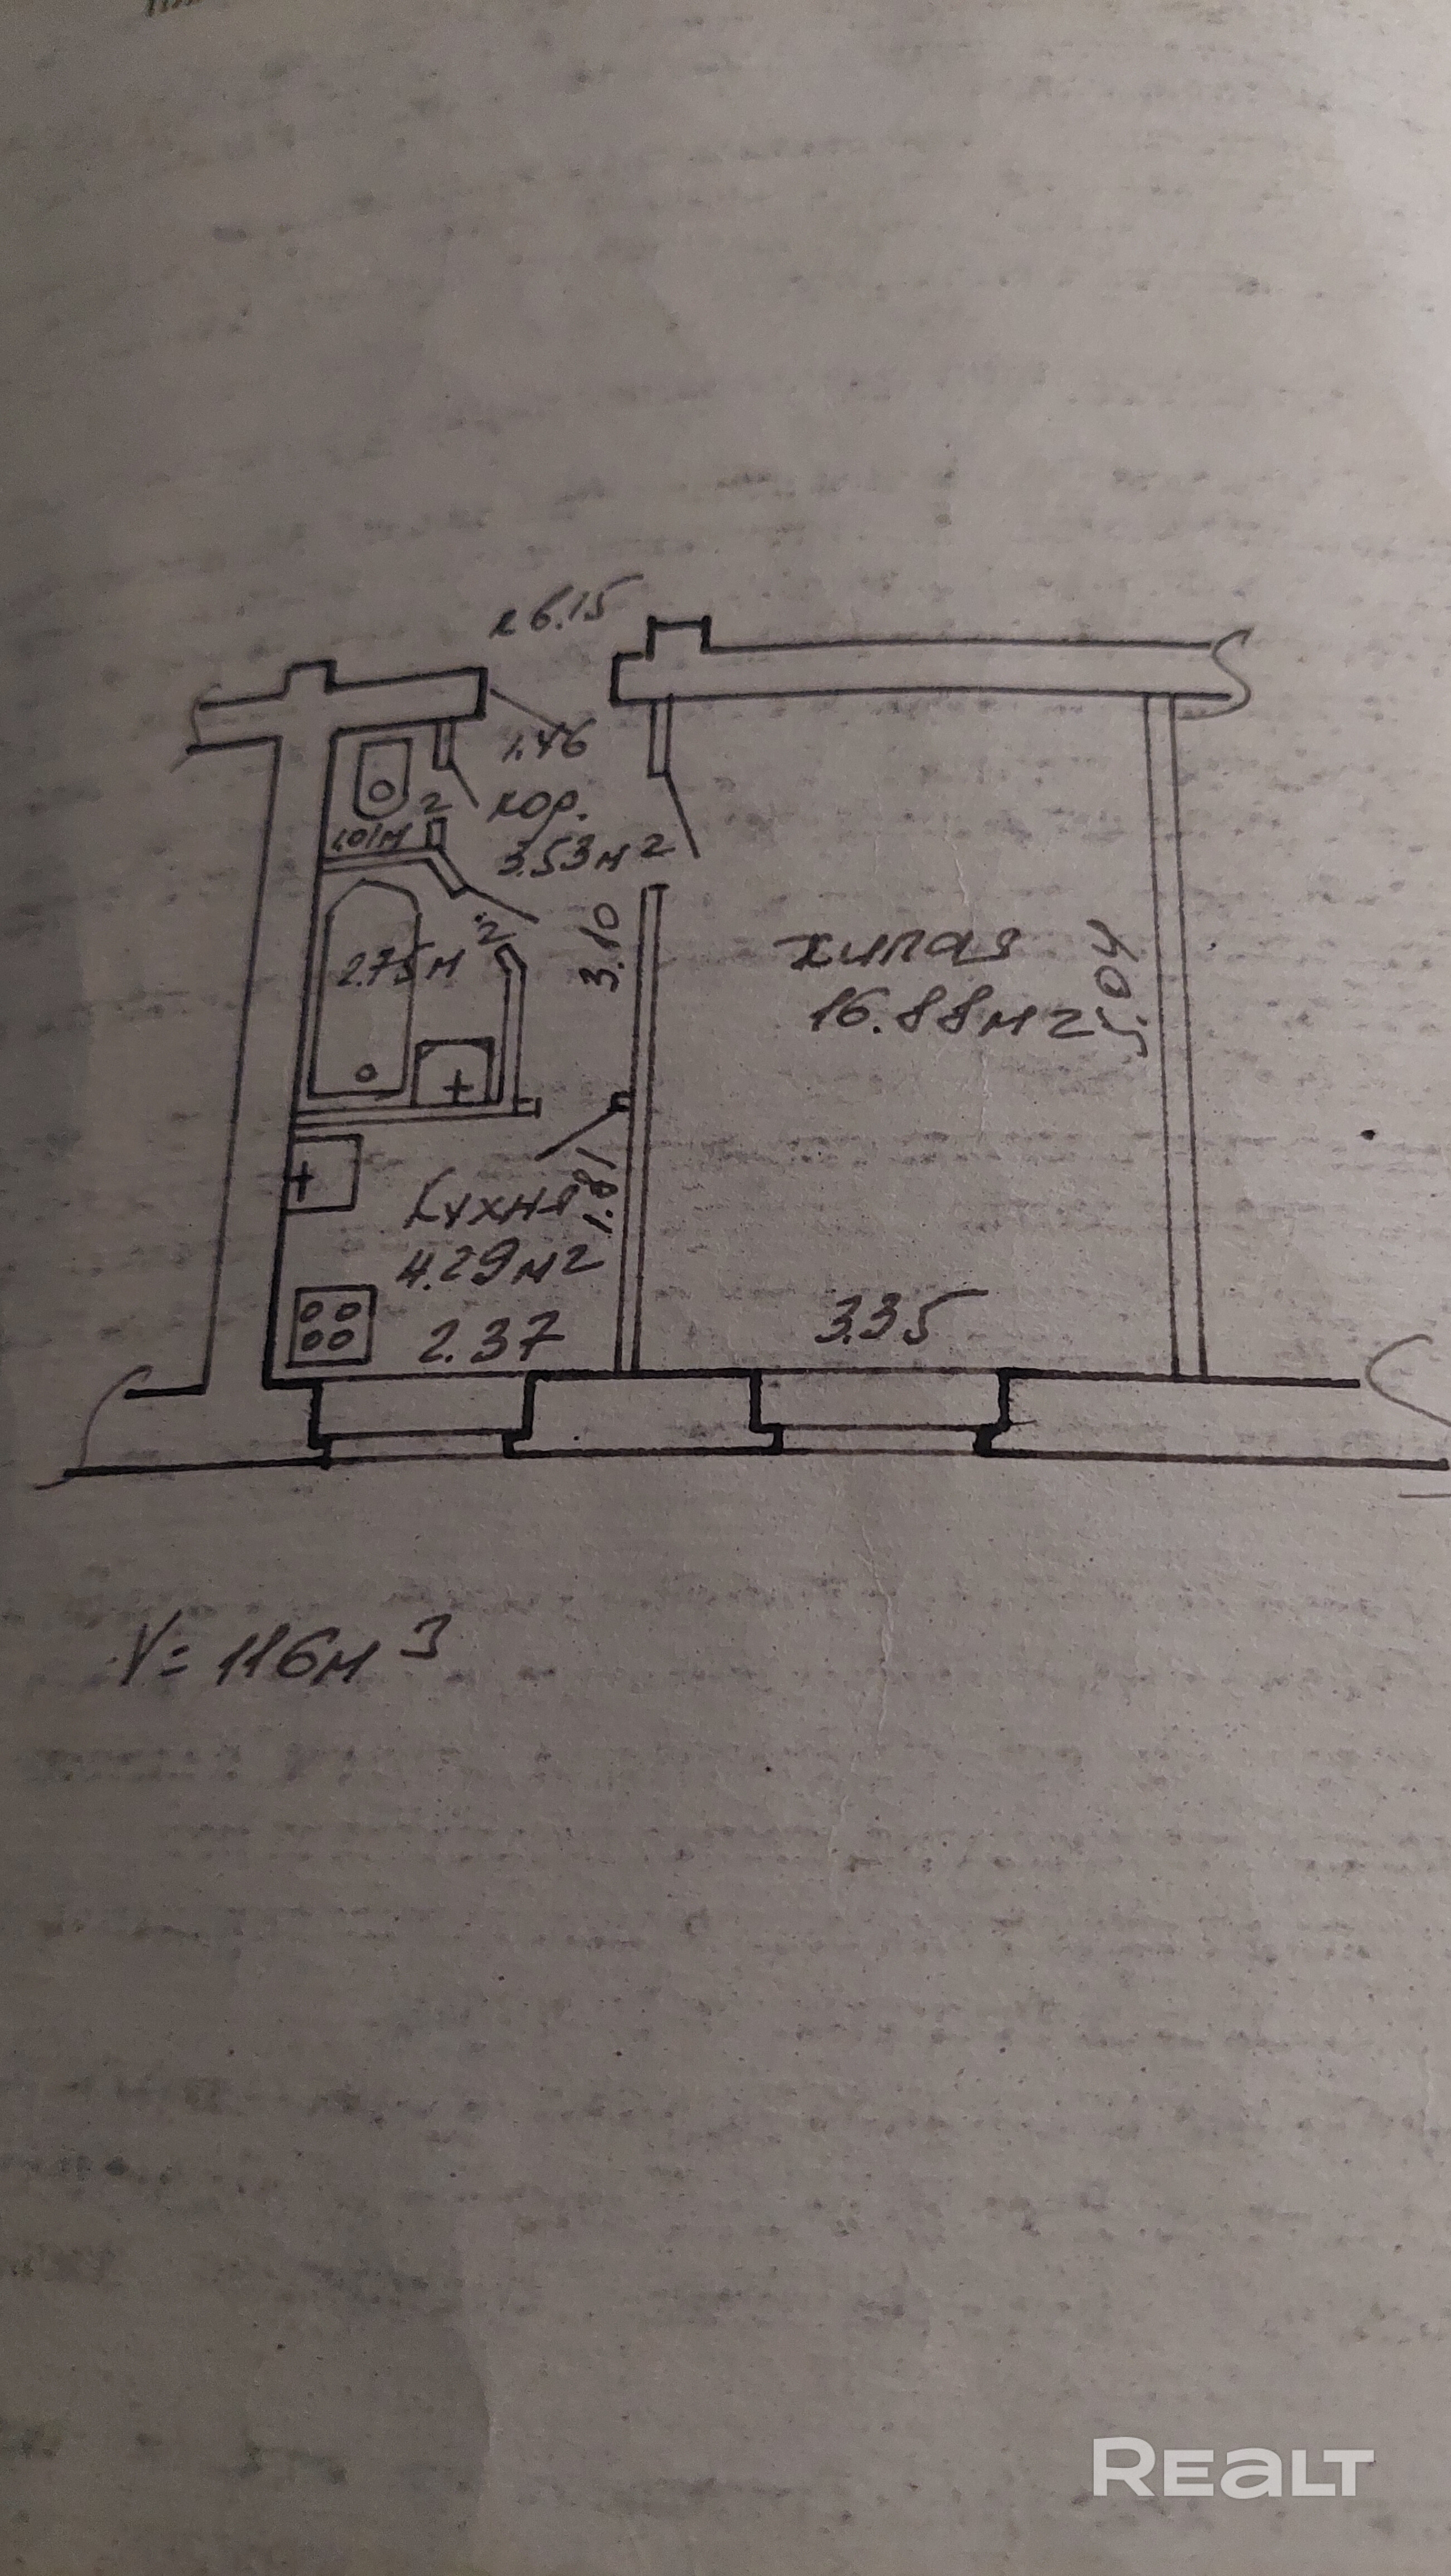 к6.15
1.46
кор.
3.53м2
1.01м2
2.75м2
3.10
жилая
16.88м2
5.04
Кухня
1.81
4.29м2
2.37
3.35
V=116м3
REALT